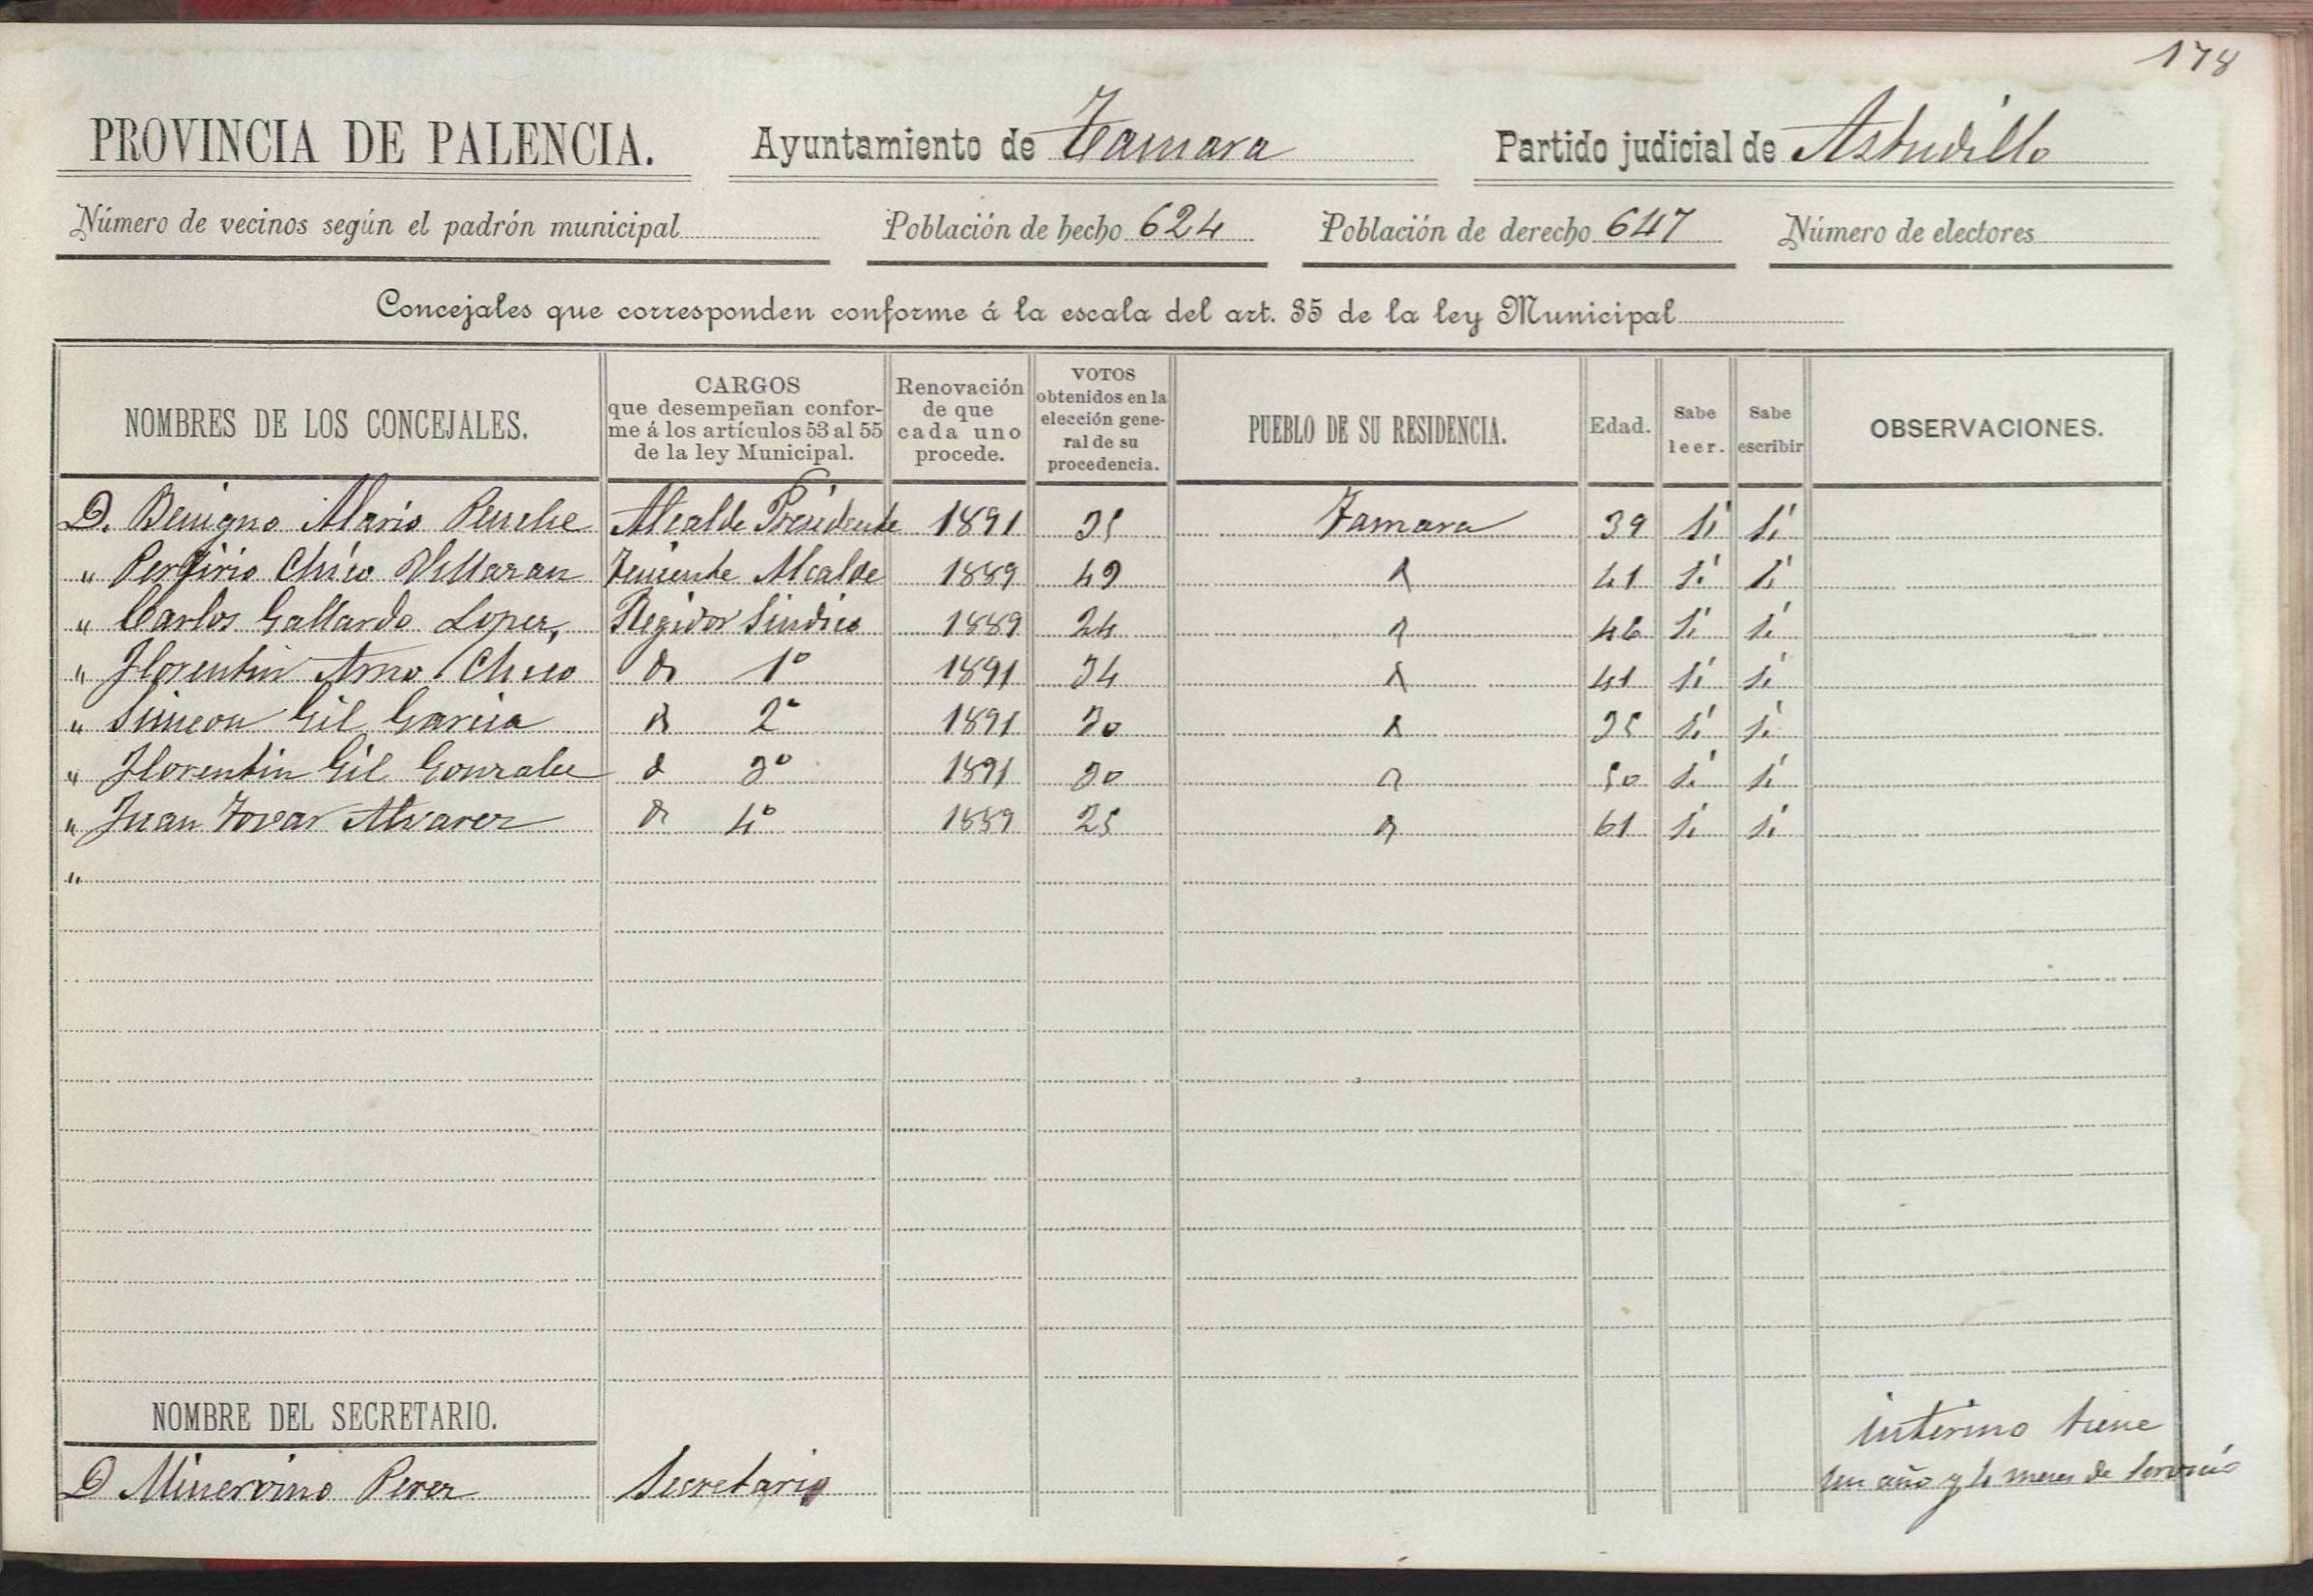 178
PROVINCIA DE PALENCIA. Ayuntamiento de Tamara Partido judicial de Astudillo
Número de vecinos según el padrón municipal Población de hecho 624 Población de derecho 647 Número de electores
Concejales que corresponden conforme á la escala del art. 35 de la ley Municipal
NOMBRES DE LOS CONCEJALES. CARGOS que desempeñan conforme á los artículos 53 al 55 de la ley Municipal. Renovación de que cada uno procede. VOTOS obtenidos en la elección general de su procedencia. PUEBLO DE SU RESIDENCIA. Edad. Sabe leer. Sabe escribir OBSERVACIONES.
D. Benigno Alario Alcalde Presidente 1891 35 Tamara 39 si si
" Perfirio Chico Villaran Teniente Alcalde 1889 49 41 si si
" Carlos Gallardo Lopez, Regidor Sindico 1889 24 si si
" Florentin Amo Chico 1º 1891 34 41 si si
" Simeon Gil Garcia 2º 1891 30 35 si si
" Florentin Gil Gonzalez 3º 1891 30 50 si si
" Juan Tovar Alvarez 4º 1889 25 61 si si
"
NOMBRE DEL SECRETARIO.
D Minervino Perez Secretario
interino tiene
un año y meses de servicio